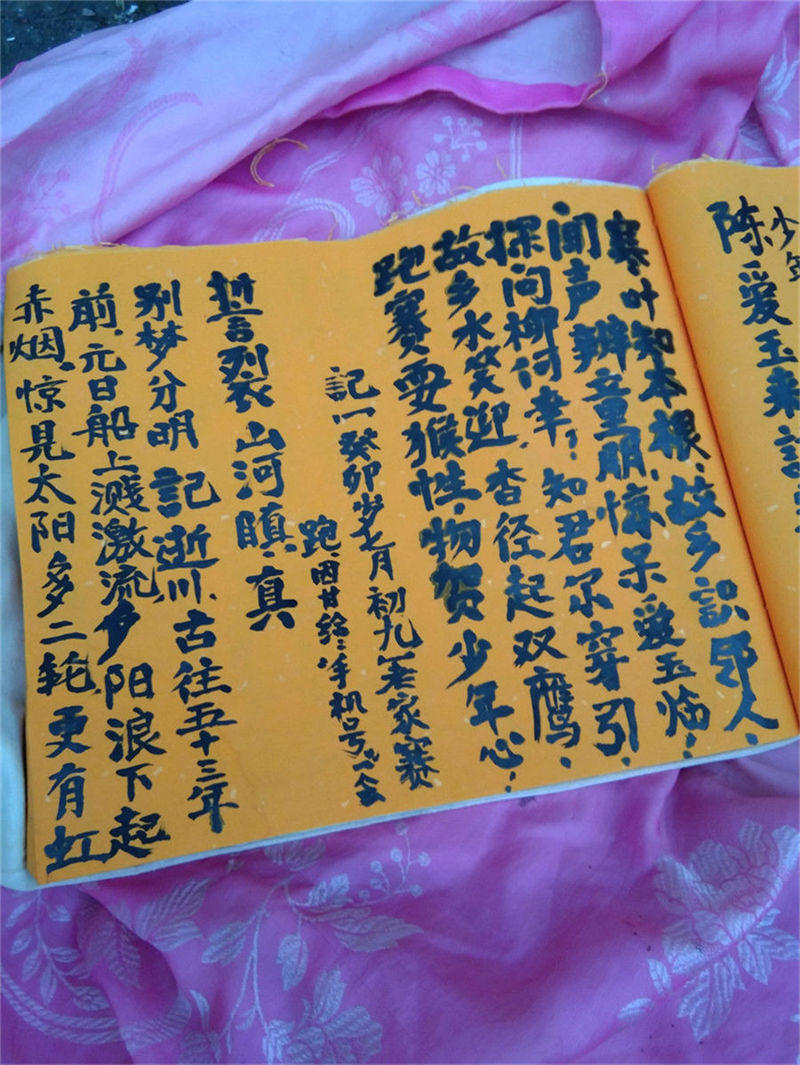 少年
陈爱玉来訪
寒叶知本根，故乡識邻人，
闻声辨童朋，惊呆爱玉临！
探问柳何幸？知君尔穿引！
故乡水笑迎，杳径起双鹰，
跑赛耍猴性，物贺少年心！
記一癸卯少七月初九老家赛
跑，因甘给手机号么会
誓裂山河瞋，真
别梦分明記逝川，古往五十三年
前，元日船上溅激流，夕阳浪下起
赤烟，惊見太阳多二轮，更有虹